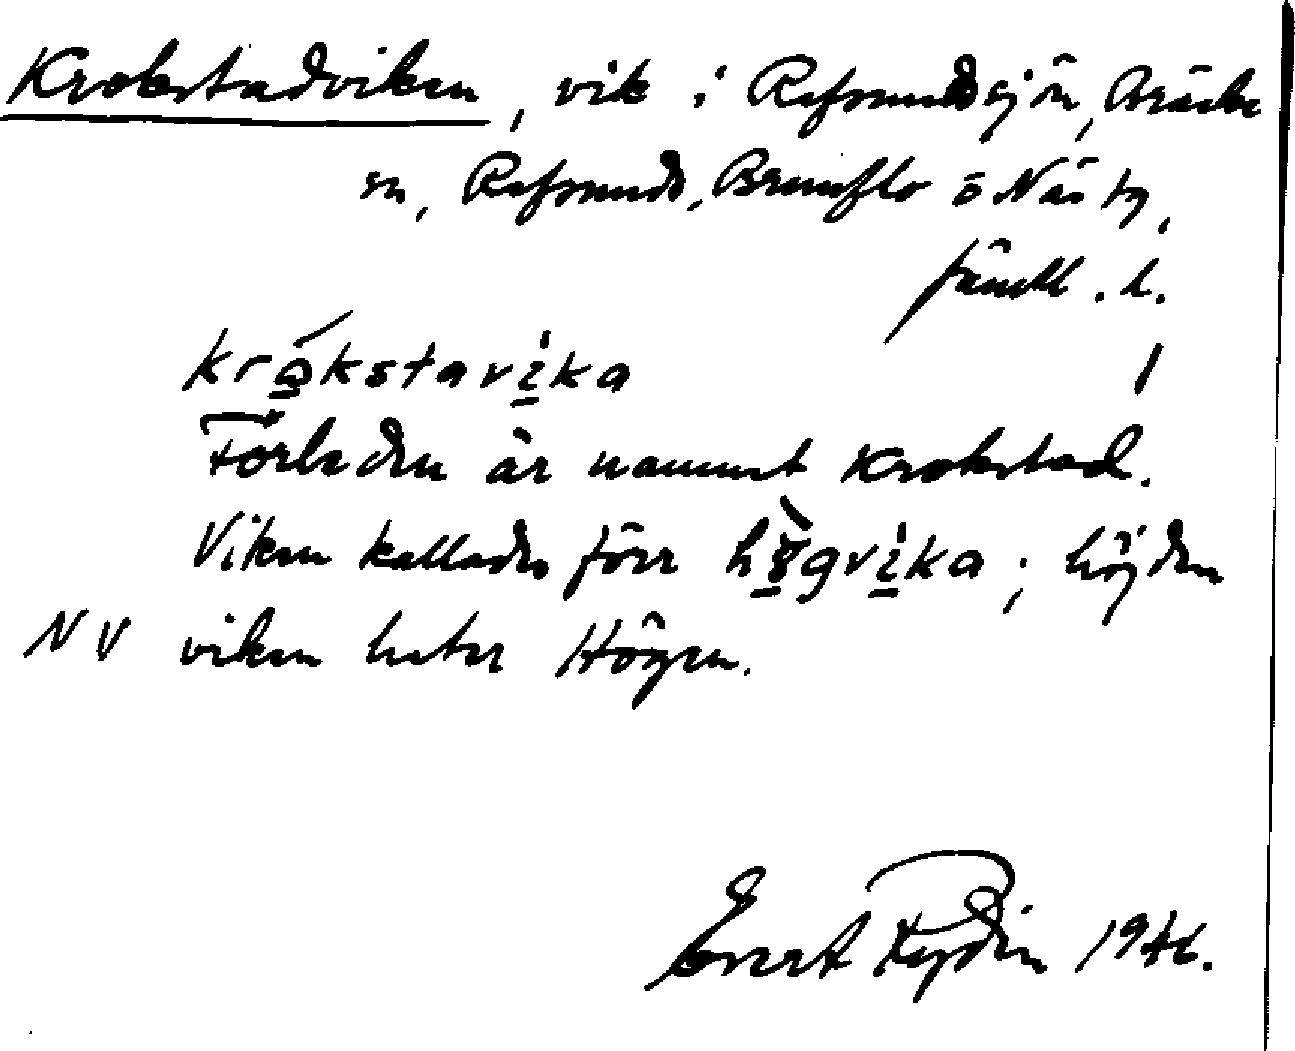 Krokstadviken, vik i Refsundssjön, Bräcke
sn, Refsunds, Brunflo o Näs tg,
Jämtl. l.
krókstavika
Förleden är namnet Krokstad.
Viken kallades förr hògvika; höjden
NV viken heter Högen.
Evert Rydin 1946.